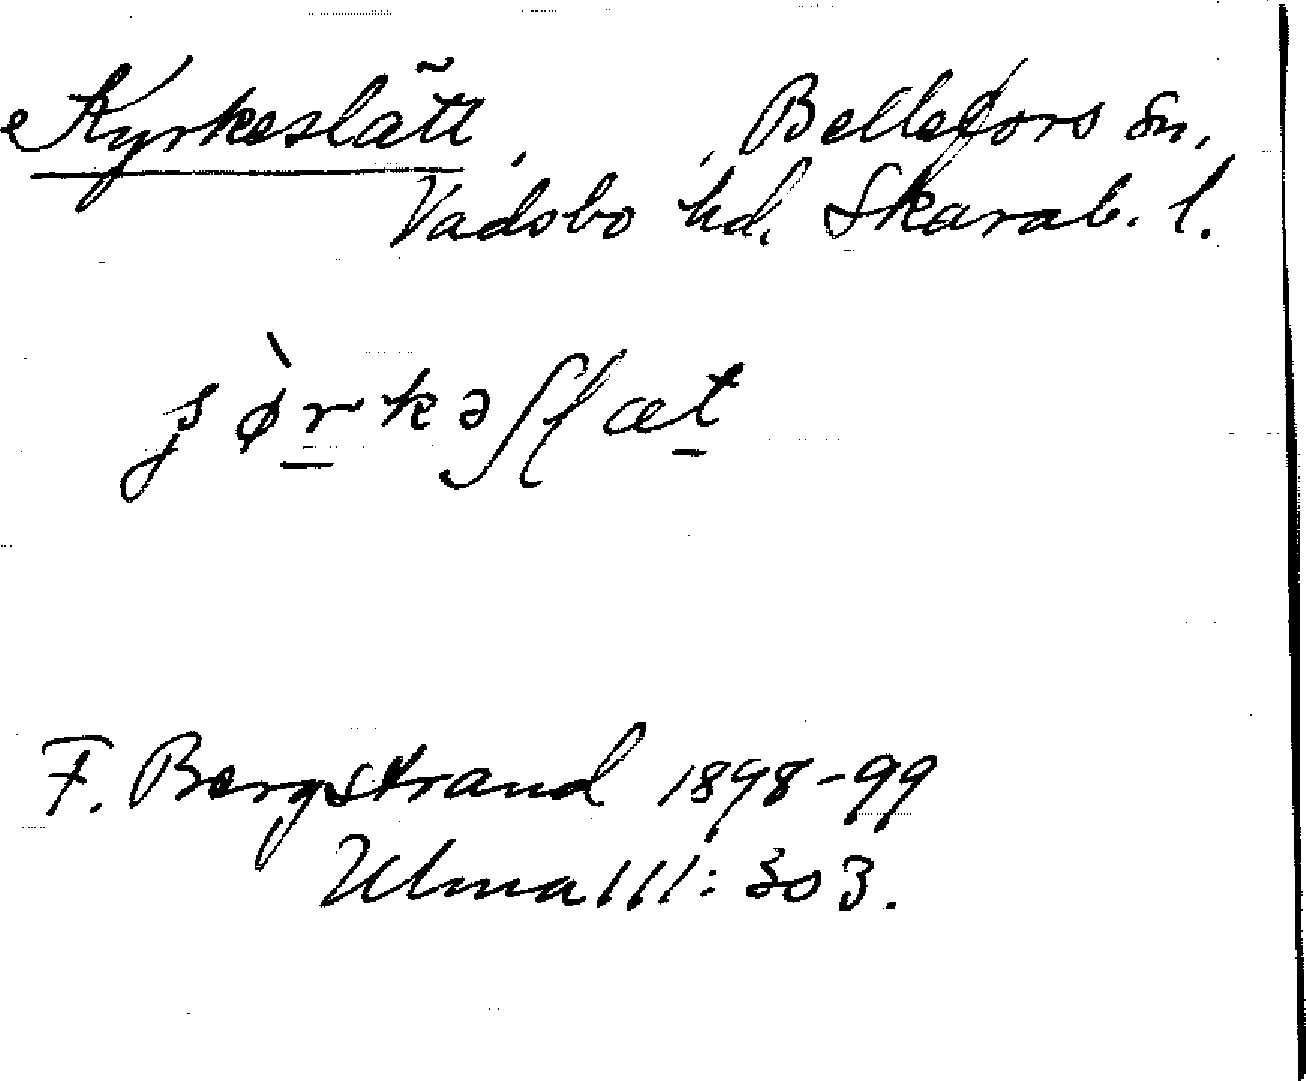 Kyrkeslätt, , Bellefors sn,
Vadsbo hd. Skarab. l.
ʂø̀rkəʃlæt
F. Bergstrand 1898-99
Ulma 111: 303.